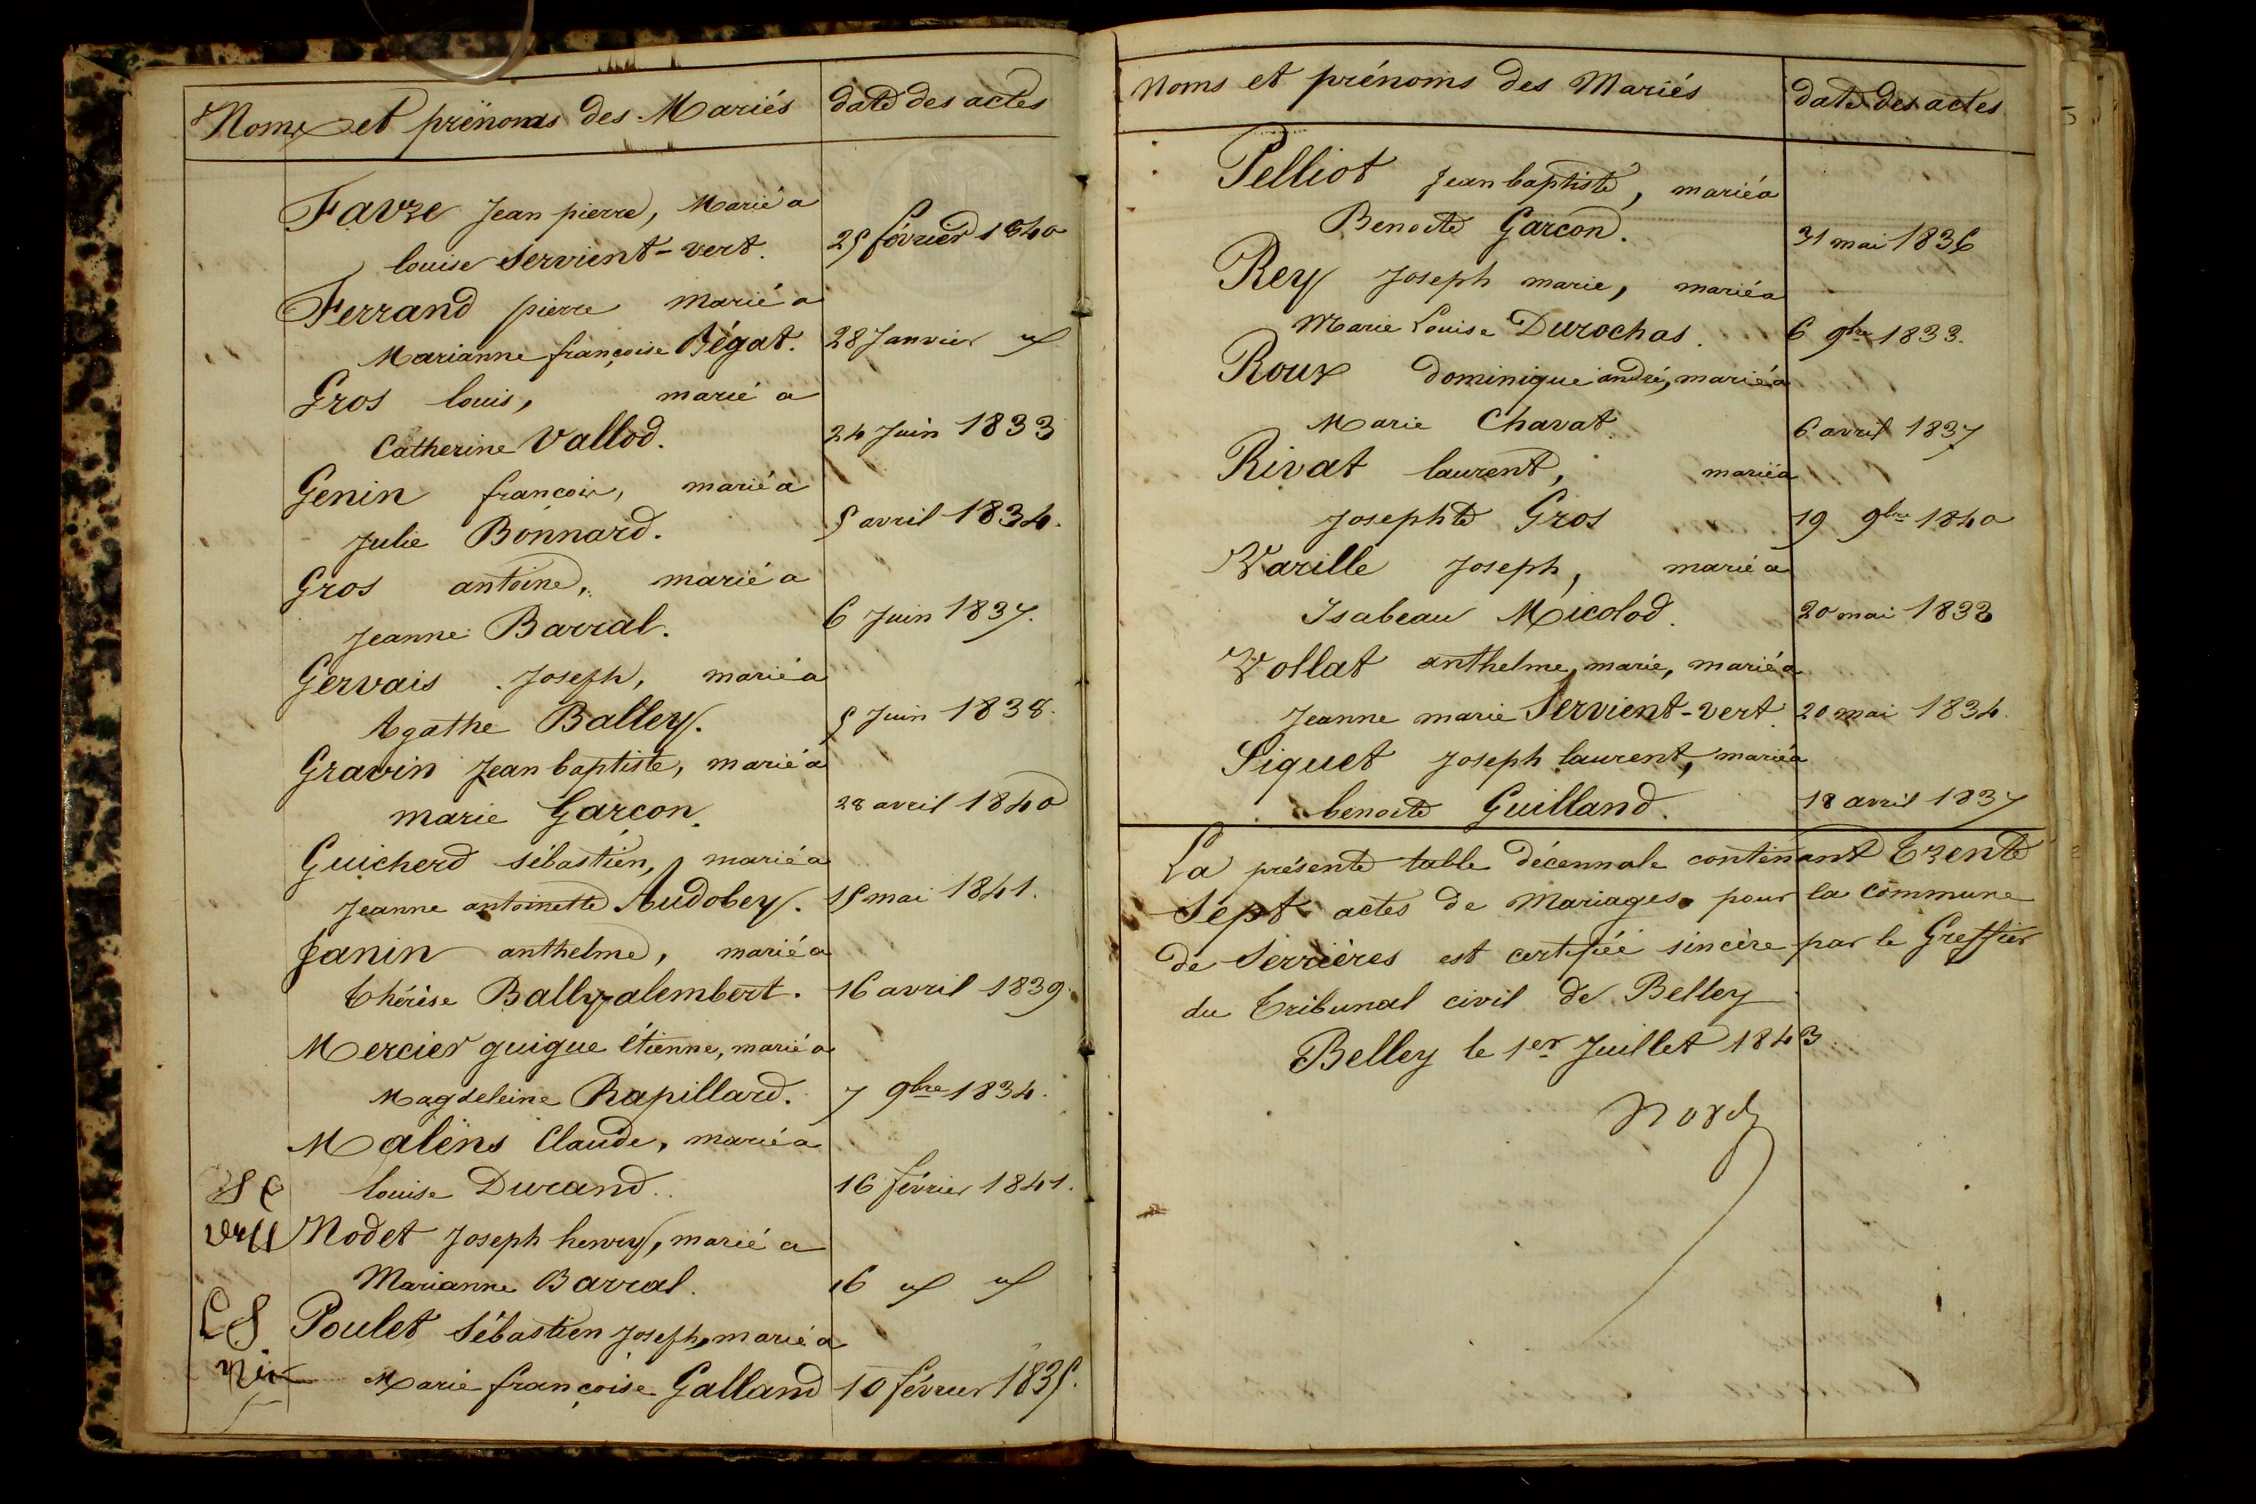 Noms et prénoms des Mariés date des actes
Favre Jean pierre, Marié a
louise Servient-vert. 25 février 1840
Ferrand pierre Marié a
Marianne françoise Bégat. 28 Janvier
Gros louis, marié a
Catherine Vallod. 24 Juin 1833
Genin françois, marié a
Julie Bonnard. 5 avril 1834.
Gros antoine, marié a
Jeanne Barral. 6 Juin 1837.
Gervais Joseph, marié a
Agathe Balley. 5 Juin 1838.
Gravin Jean baptiste, marié a
marie Garcon. 28 avril 1840
Guicherd sébastien, marié a
Jeanne antoinette Audobey. 15 mai 1841.
Janin anthelme, marié a
thérèse Ballyzalembert. 16 avril 1839.
Mercier guigue étienne, marié a
Magdeleine Rapillard. 7 9bre 1834.
Malens Claude, marié a
louise Durand. 16 février 1841.
Nodet Joseph henry, marié a
Marianne Barral. 16
Poulet Sébastien Joseph, marié a
Marie françoise Galland 10 février 1835.
Noms et prénoms des Mariés date des actes
Pelliot Jean baptiste, marié a
Benoite Garcon. 31 mai 1836
Rey Joseph marie, marié a
Marie Louise Durochas. 6 9bre 1833.
Roux dominique andré, marié a
Marie Chavat. 6 avril 1837
Rivat laurent, marié a
Josephte Gros 19 9bre 1840
Varille Joseph, marié a
Isabeau Micolod. 20 mai 1833
Vollat anthelme marie, marié a
Jeanne marie Servient-vert. 20 mai 1834.
Siquet Joseph laurent, marié a
benoite Guilland. 18 avril 1837
La présente table décennale contenant trente
Sept actes de Mariages pour la commune
de Serrières est certifiée sincère par le Greffier
du tribunal civil de Belley
Belley le 1er Juillet 1843.